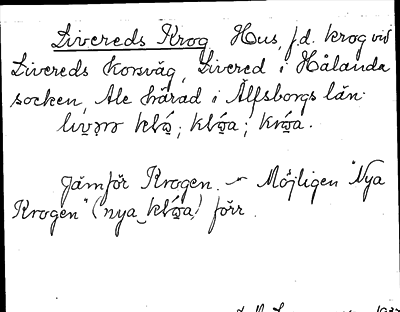 Livereds Krog Hus, f.d. krog vid
Livereds korsväg, Livered i Hålanda
socken, Ale härad i Älfsborgs län.
Jämför Krogen. – Möjligen "Nya
Krogen" (nya) förr.